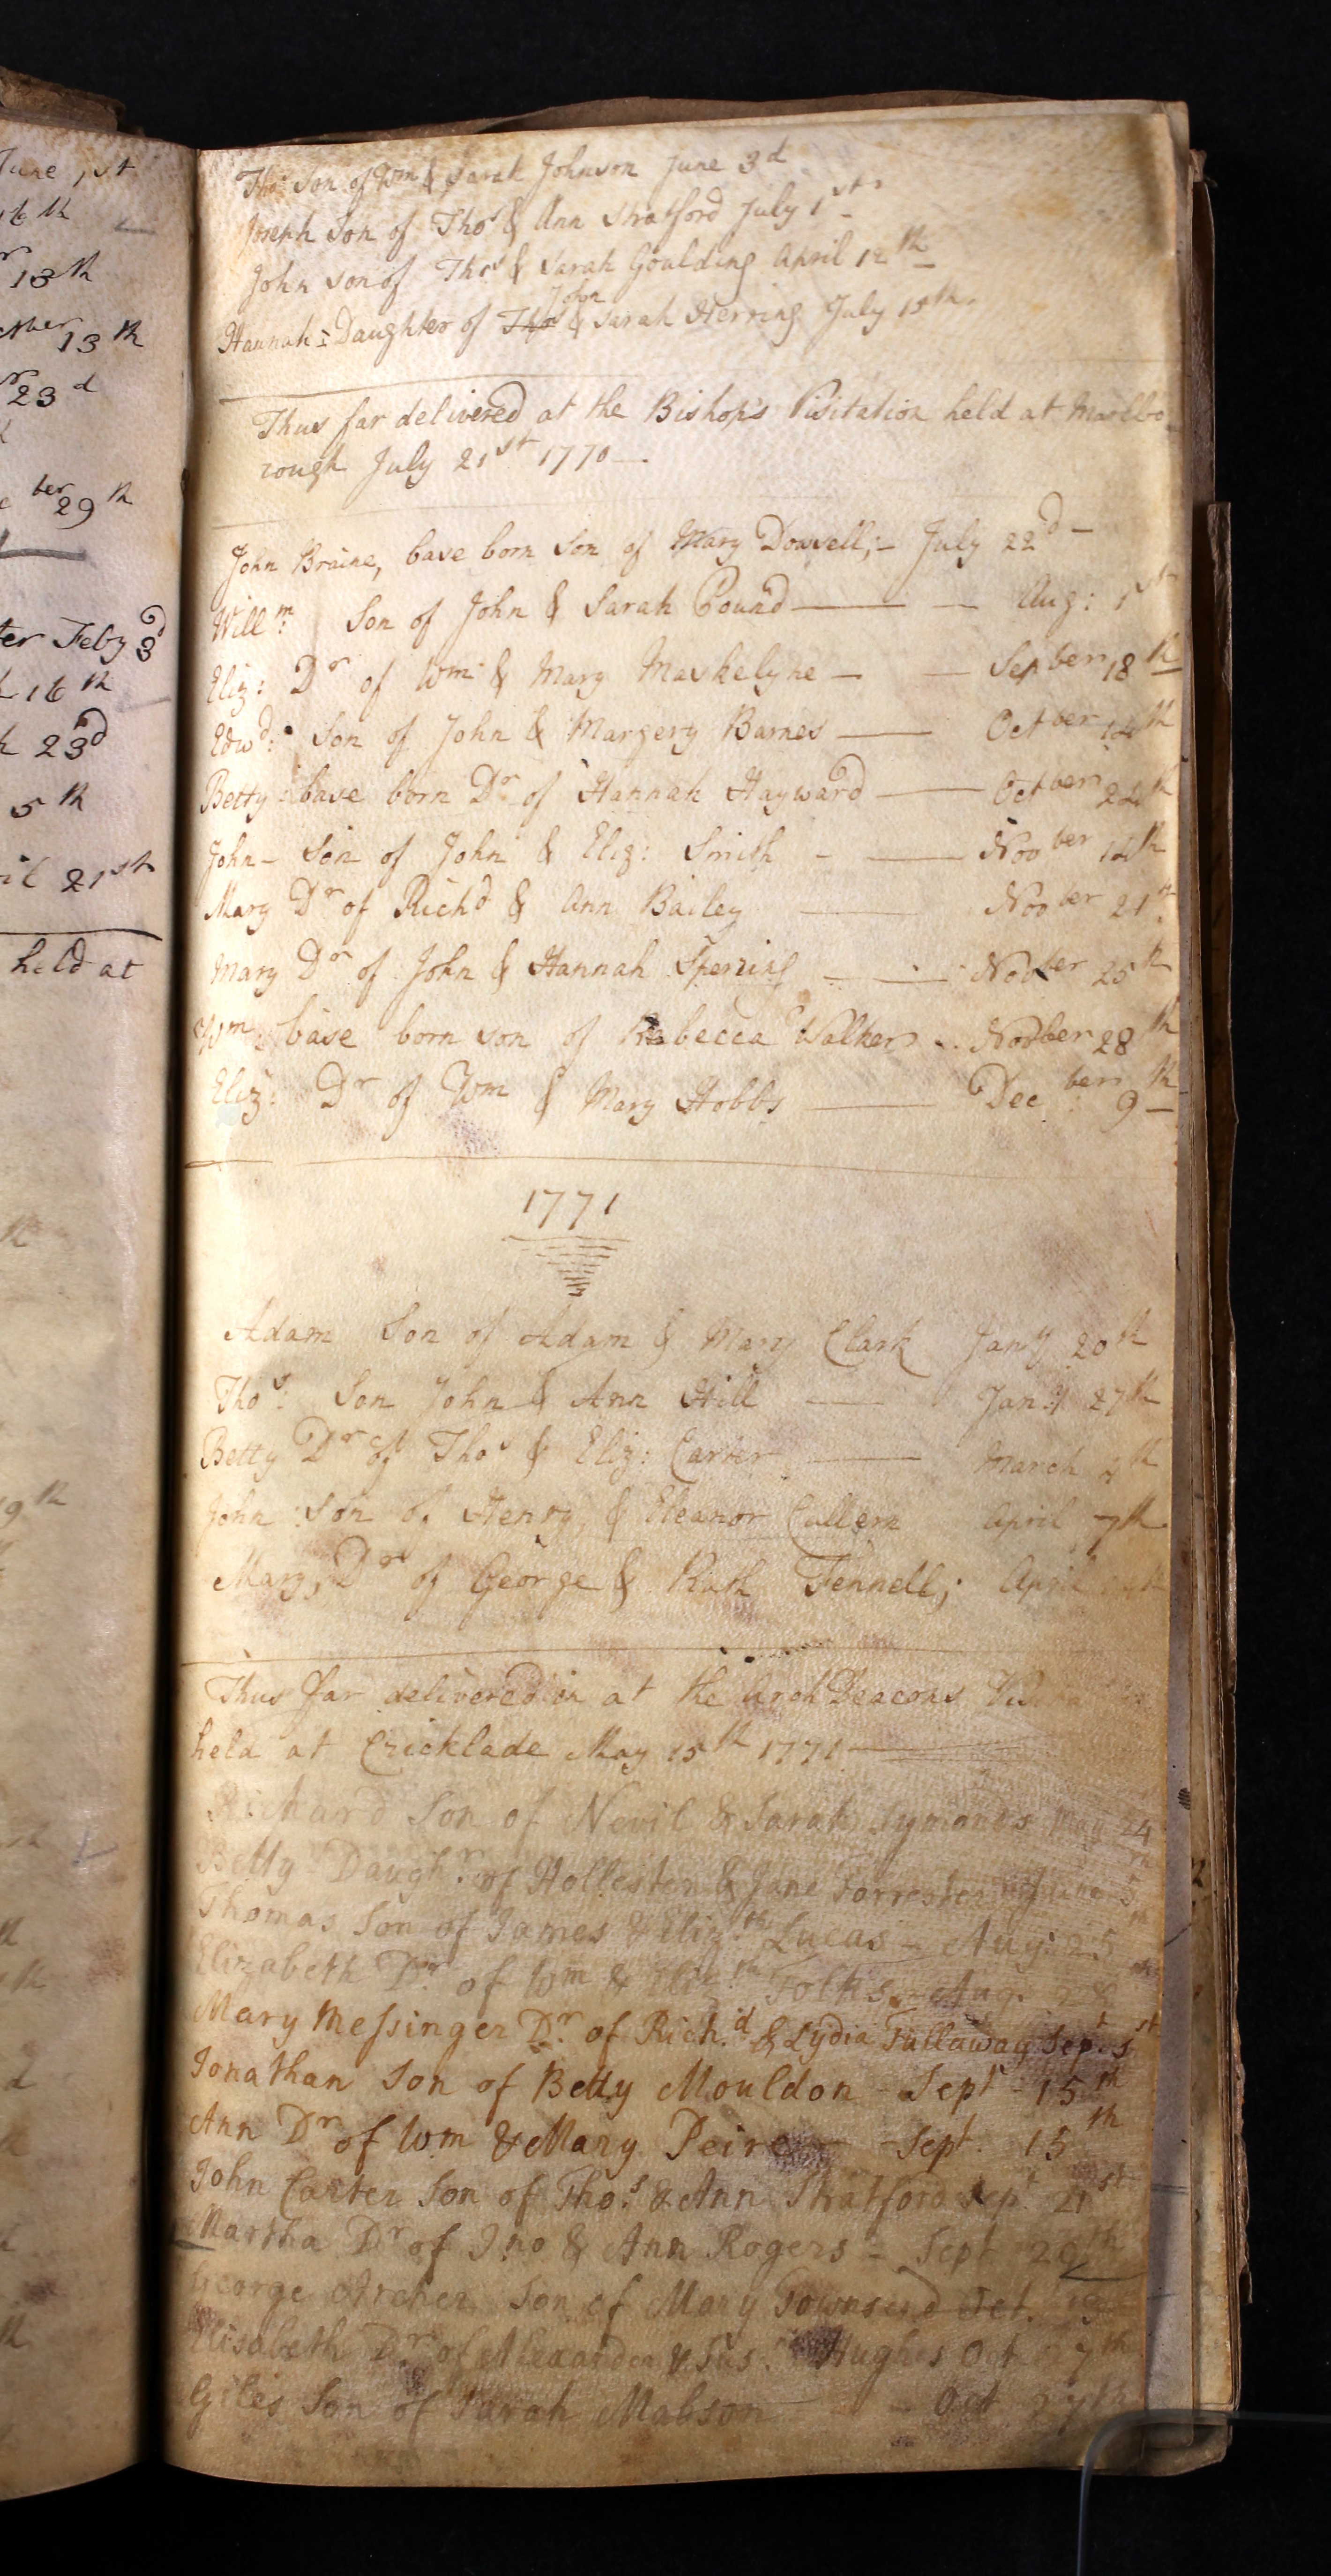 June 1st
16th
13th
ber 13th
23d
ber 29th
ter Feby 3d
16th
23d
5th
il 21st
held at
Thos: Son of Wm & Sarah Johnson June 3d
Joseph Son of Thos & Ann Stratford July 1st
John son of Thos & Sarah Goulding April 12th
John
Hannah: Daughter of Thos & Sarah Herring July 15th
Thus far delivered at the Bishop's Visitation held at Marlbo
rough July 21st 1770
John Braine, base born Son of Mary Dowell; July 22d
Willm: Son of John & Sarah Pound Aug: 1st
Eliz: Dr of Wm & Mary Maskelyne Sepber 18th
Edwd: Son of John & Margery Barnes Octber 14th
Betty base born Dr of Hannah Hayward Octber 24th
John Son of John & Eliz: Smith Novber 14th
Mary Dr of Richd & Ann Bailey Novber 21st
Mary Dr of John & Hannah Spering Novber 25th
Wm base born son of Rebecca Walker Novber 28th
Eliz: Dr of Wm & Mary Hobbs Decber: 9th
1771
Adam Son of Adam & Mary Clark Jany 20th
Thos: Son John & Ann Hill Jany 27th
Betty Dr of Thos & Eliz: Carter March th
John Son of Henry & Eleanor Cullern April 7th
Mary, Dr of George & Ruth Fennell; April
Thus far delivered in at the ArchDeacons
held at Cricklade May 15th 1771
Richard Son of Nevil & Sarah Symonds May 24
Betty Daughr. of Hollester & Jane Forrester June 5
Thomas Son of James & Elizth Lucas - Aug: 25th
Elizabeth Dr of Wm & Elizth Folks Aug. 28
Mary Messinger Dr. of Rich.d & Lydia Tullaway Sept. 1st
Jonathan Son of Betty Mouldon Sept - 15th
Ann Dr of Wm & Mary Peirce Sept. 15th
John Carter Son of Thos. & Ann Stratford Sept 21st
Martha Dr of Jno & Ann Rogers - Sept 29th
George Archer Son of Mary Townsend Oct.
Elisabeth Dr. of Alexander & Sus. Hughes Oct 7th
Giles Son of Sarah Mabson - Oct 27th